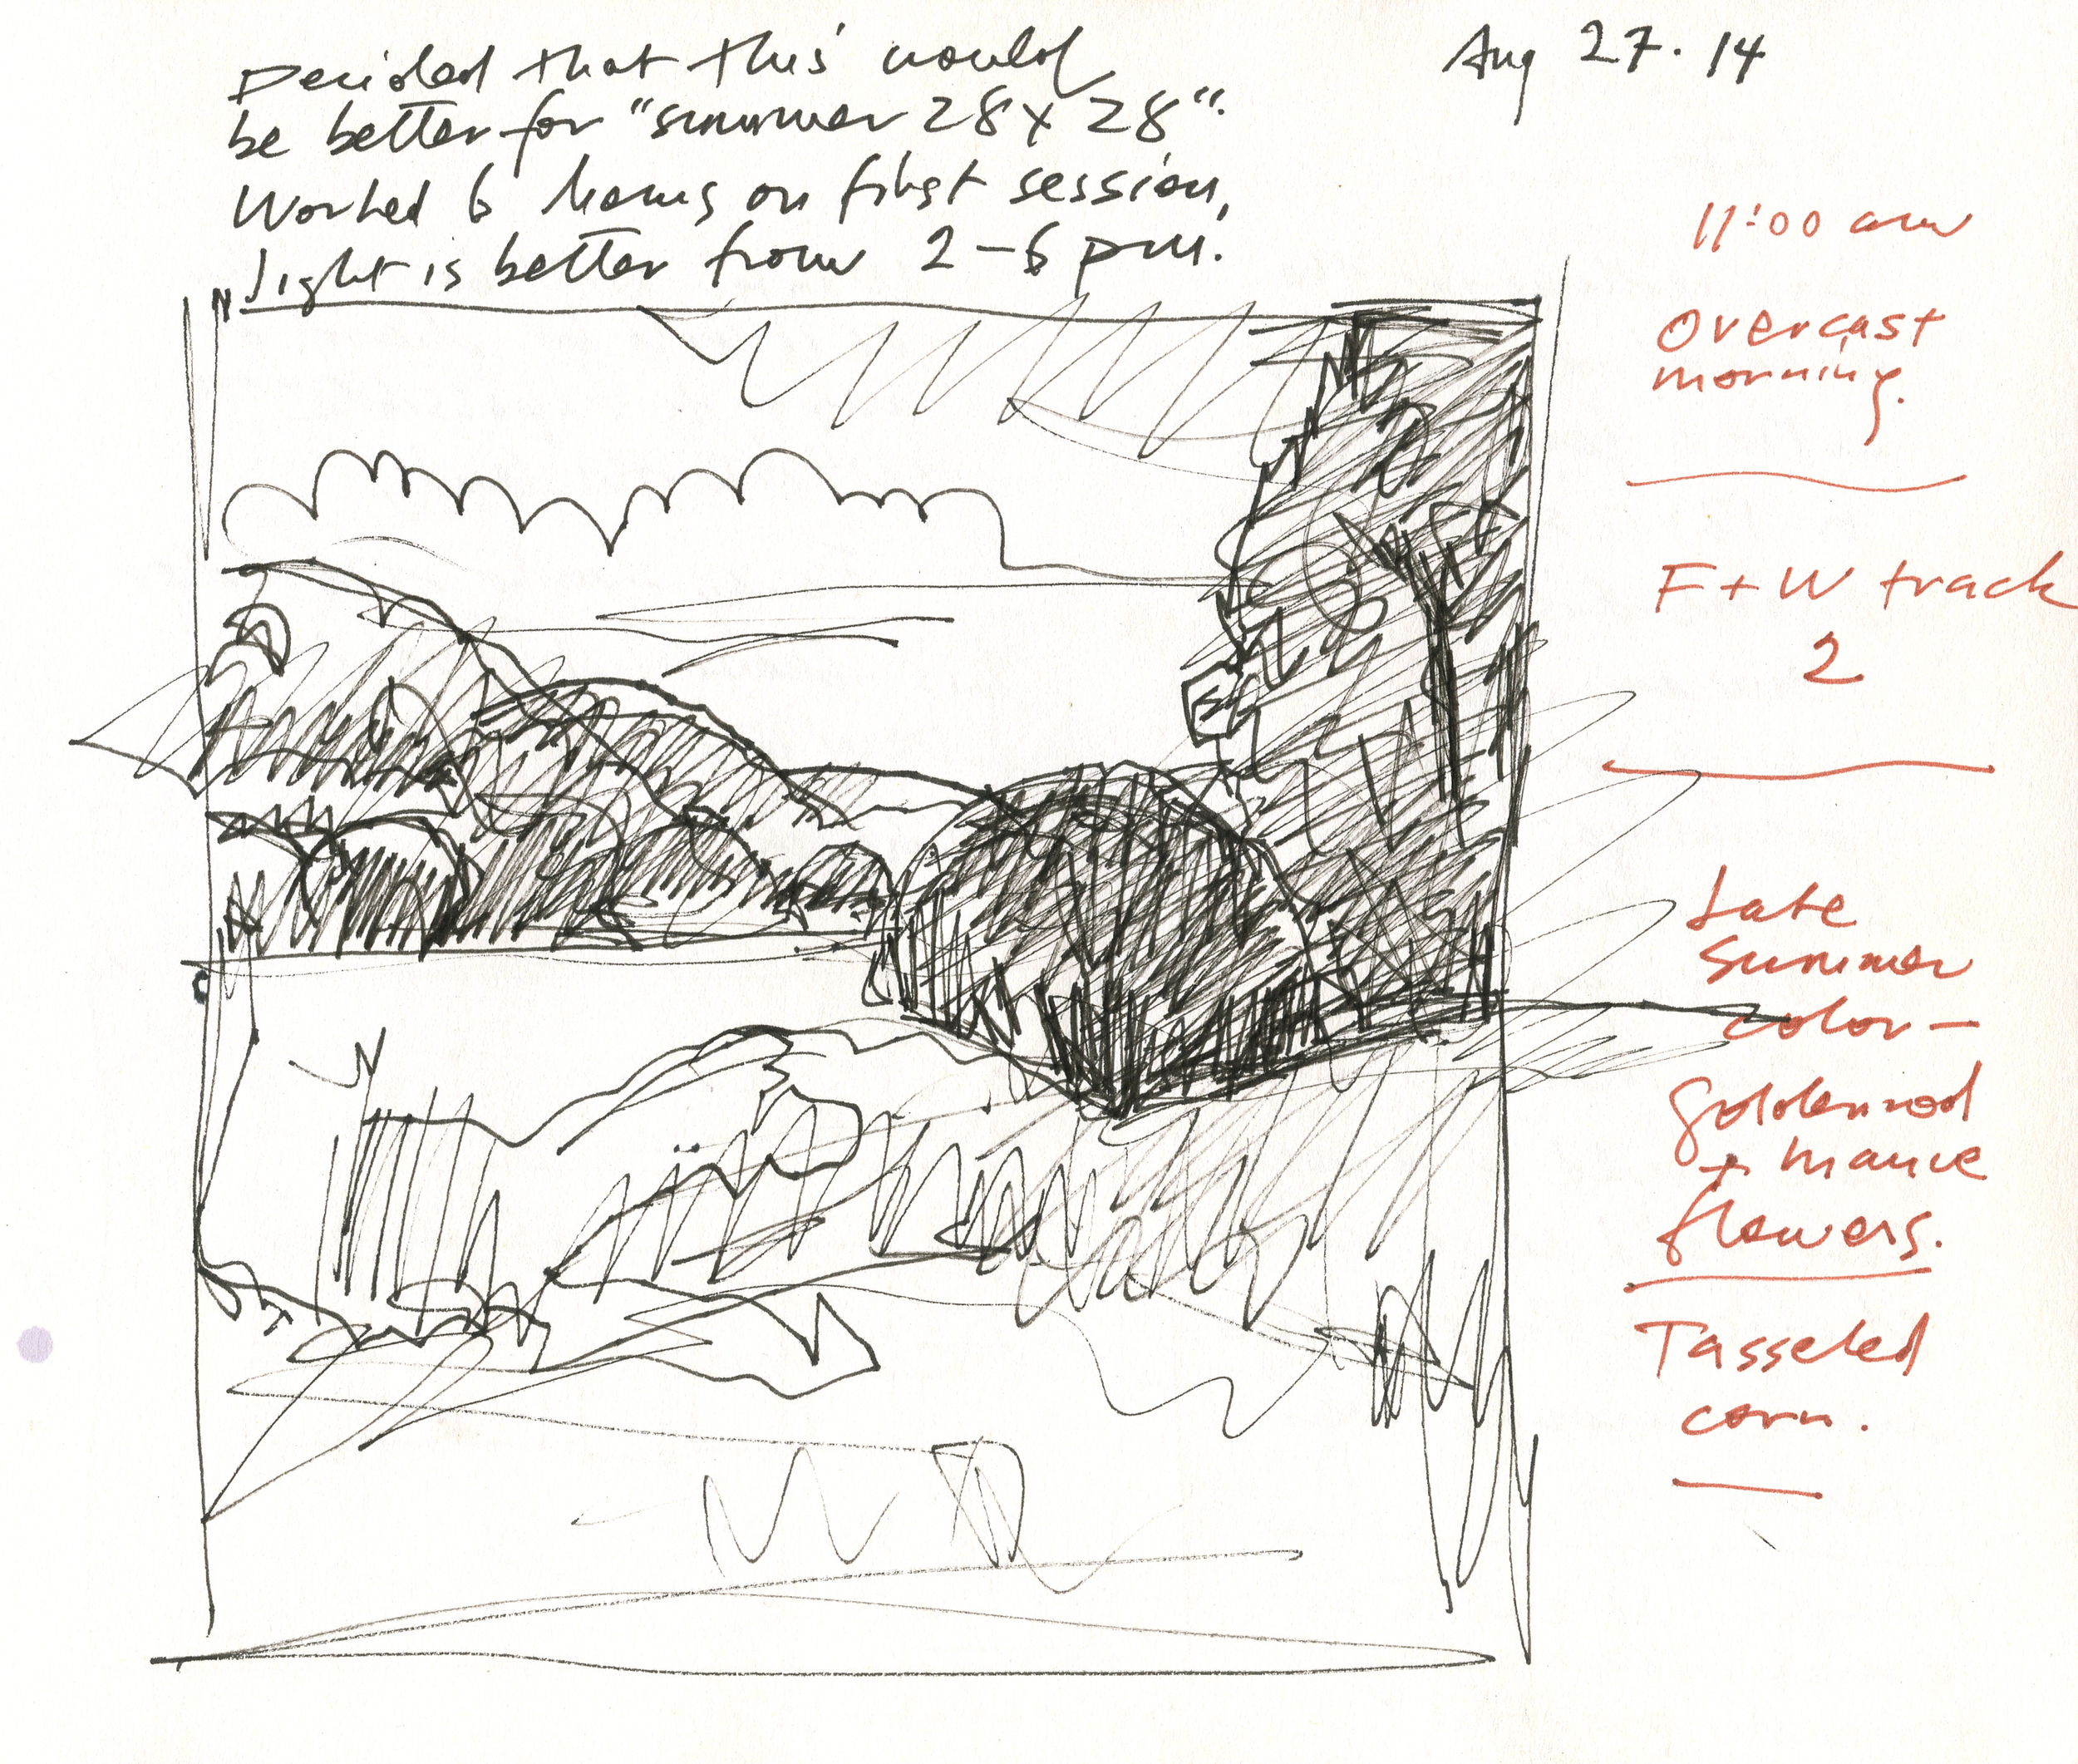 Decided that this would
be better for "summer 28 x 28".
Worked 6 hours on first session,
Light is better from 2-6 pm.
Aug 27.14
11:00 am
Overcast
morning.
F + W track
2
Late
Summer
color -
goldenrod
+ mauve
flowers.
Tasseled
corn.